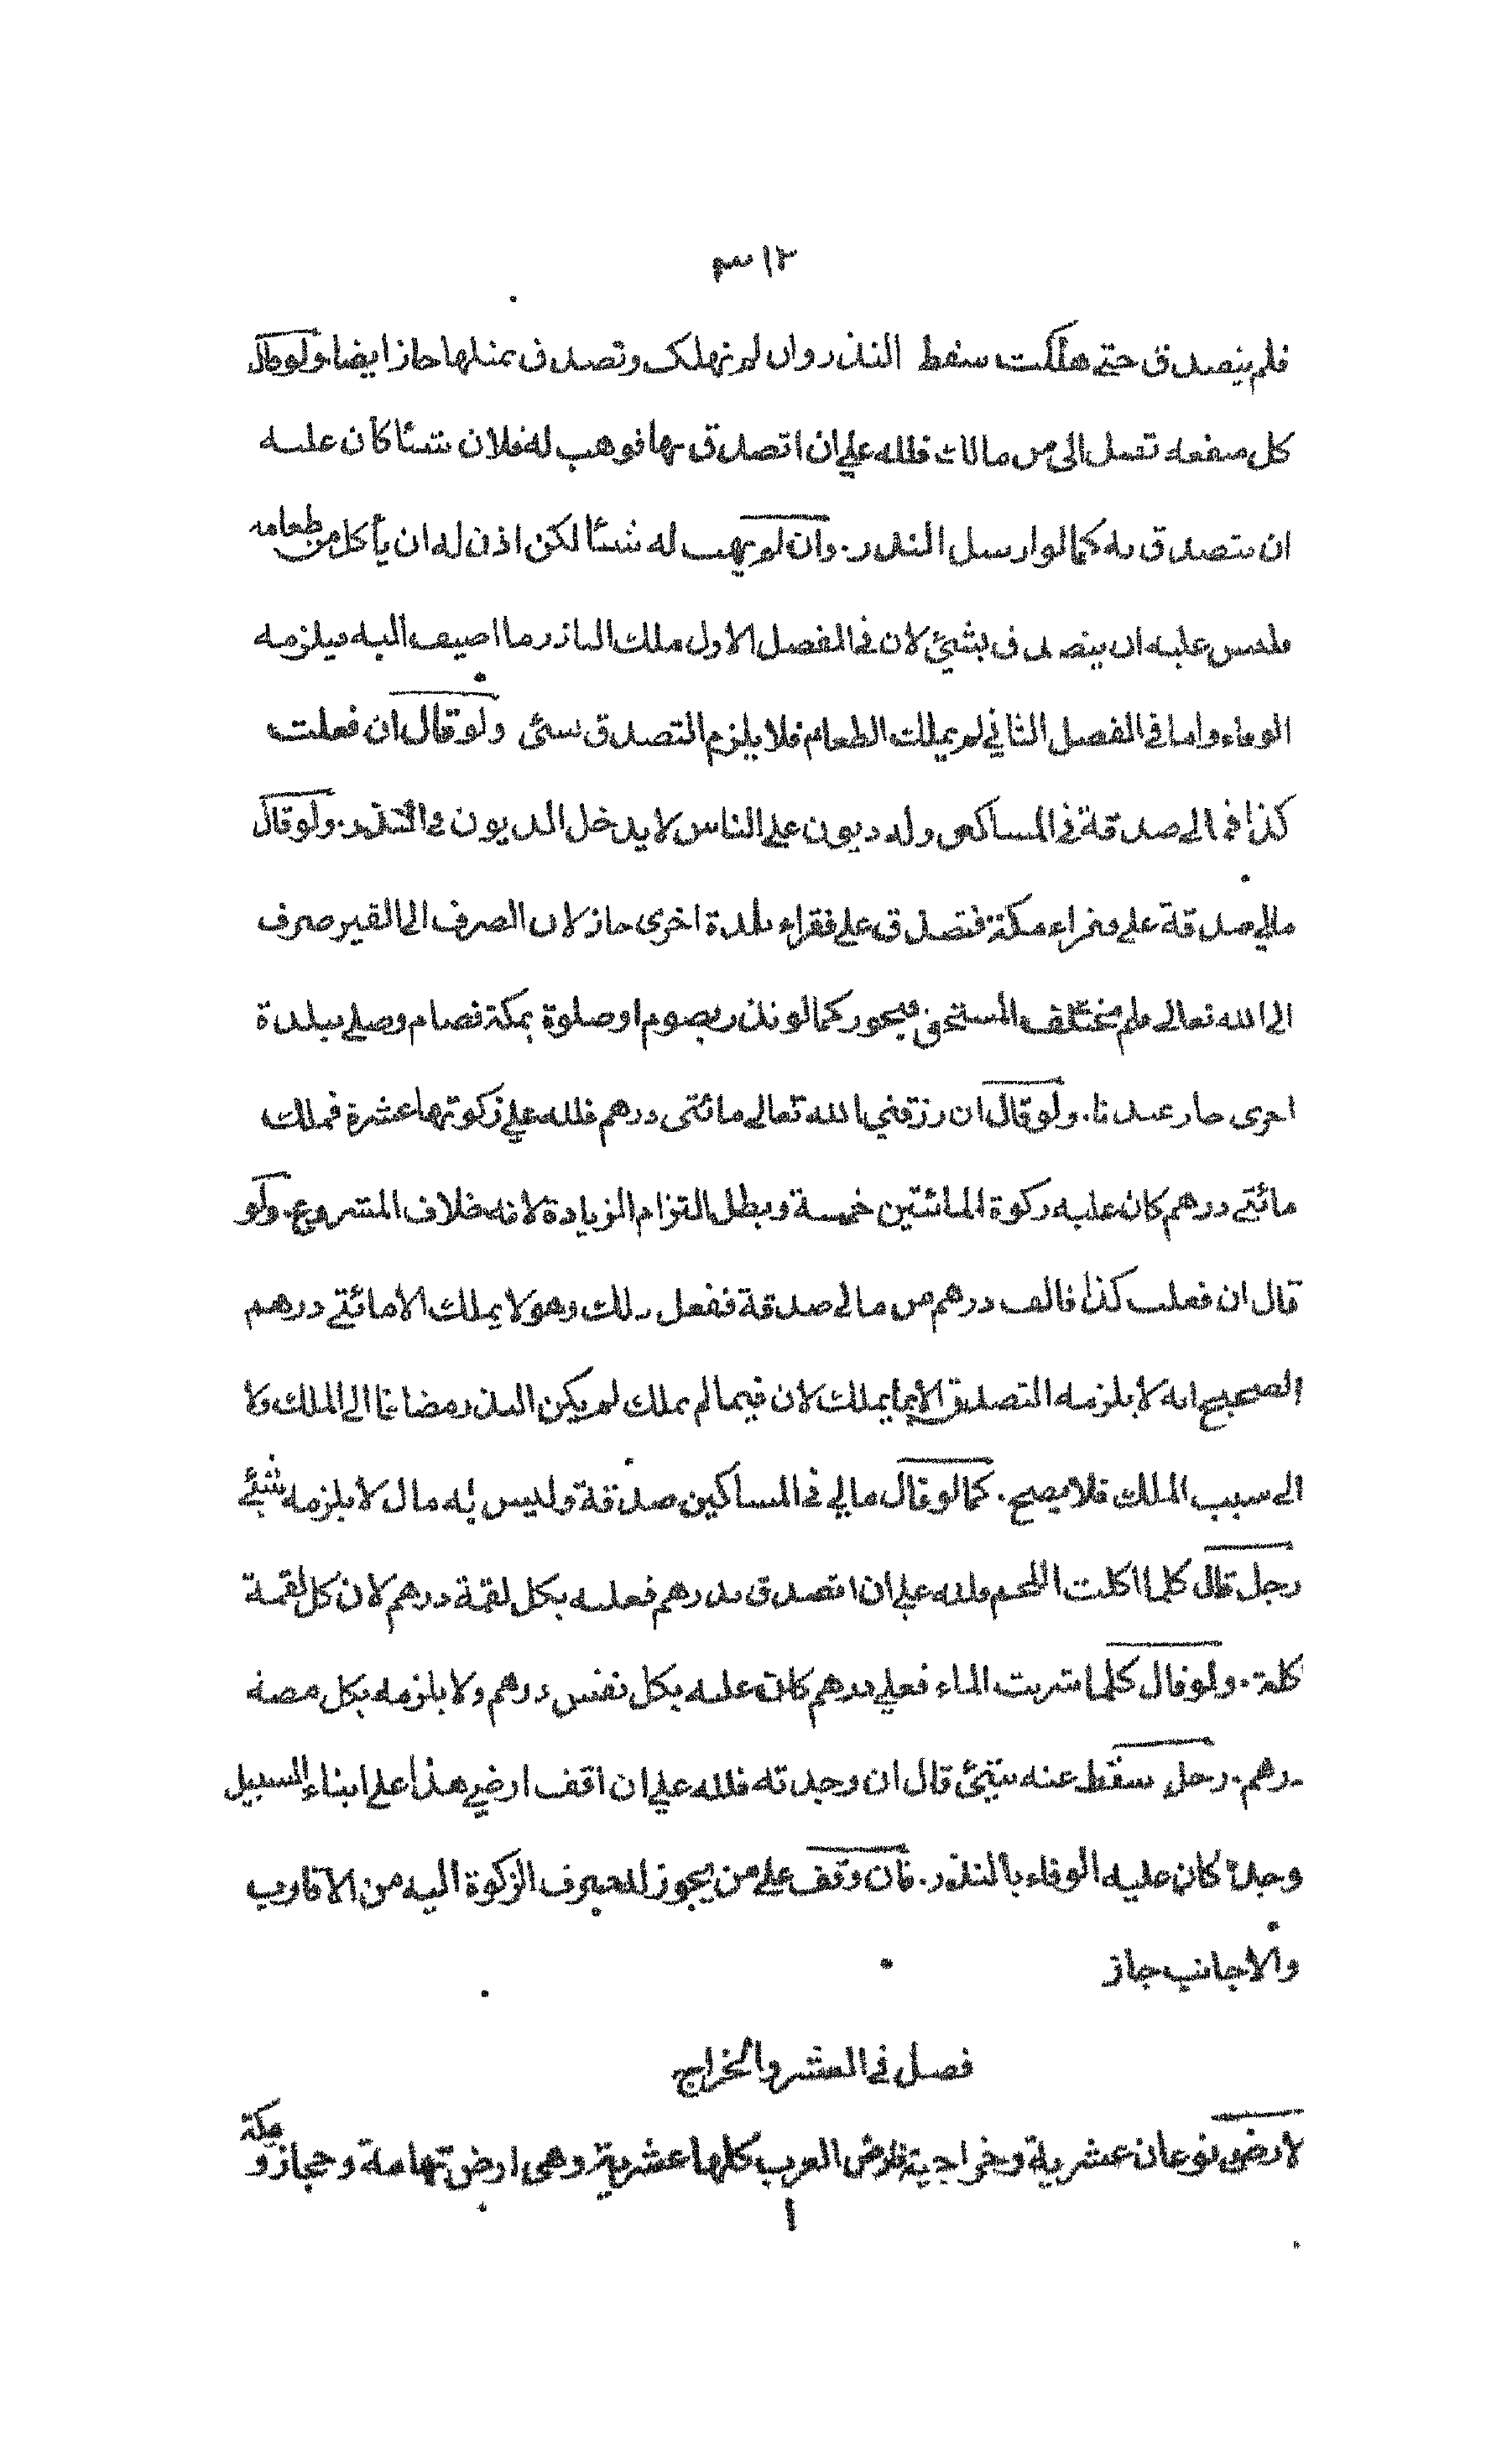 ٣١٢
فلم يتصدق حتى هلكت سقط النذر وان لم تهلك وتصدق بمثلها جاز ايضا ولو قال
كل منفعه تصل الى من مالك فلله علي ان اتصدق بها فوهب له فلان شيئا كان عليه
ان يتصدق به كما لو ارسل النذر. وان لم يهب له شيئا لكن اذن له ان يأكل من طعامه
فليس عليه ان يتصدق بشئ لان في الفصل الاول ملك الناذر ما اضيف اليه فيلزمه
الوفاء واما في الفصل الثاني لم يملك الطعام فلا يلزم التصدق بشئ ولو قال ان فعلت
كذا فمالي صدقة في المساكين وله ديون على الناس لا يدخل الديون في النذر. ولو قال
مالي صدقة على فقراء مكة فتصدق على فقراء بلدة اخرى جاز لان الصرف الى الفقير صرف
الى الله تعالى فلم يختلف المستحق فيجوز كما لو نذر بصوم او صلوة بمكة فصام وصلى ببلدة
اخرى جاز عندنا. ولو قال ان رزقني الله تعالى مائتى درهم فلله علي زكوتها عشرة فملك
مائتي درهم كان عليه زكوة المائتين خمسة ويبطل التزام الزيادة لانه خلاف المشروع. ولو
قال ان فعلت كذا فالف درهم من مالي صدقة ففعل ذلك وهو لا يملك الا مائتي درهم
الصحيح انه لا يلزمه التصدق الا بما يملك لان فيما لم يملك لم يكن النذر مضافا الى الملك ولا
الى سبب الملك فلا يصح. كما لو قال مالي في المساكين صدقة وليس له مال لا يلزمه شئ
رجل قال كلما اكلت اللحم فلله علي ان اتصدق بدرهم فعليه بكل لقمة درهم لان كل لقمة
اكلة. ولو قال كلما شربت الماء فعلي درهم كان عليه بكل نفس درهم ولا يلزمه بكل مصة
درهم. رجل سقط عنه شئ قال ان وجدته فلله علي ان اقف ارضي هذا على ابناء السبيل
وجده كان عليه الوفاء بالنذر. فان وقف على من يجوز للصرف الزكوة اليه من الاقارب
والاجانب جاز
فصل في العشر والخراج
لارض نوعان عشرية وخراجية فارض العرب كلها عشرية وهي ارض تهامة وحجاز و مكة